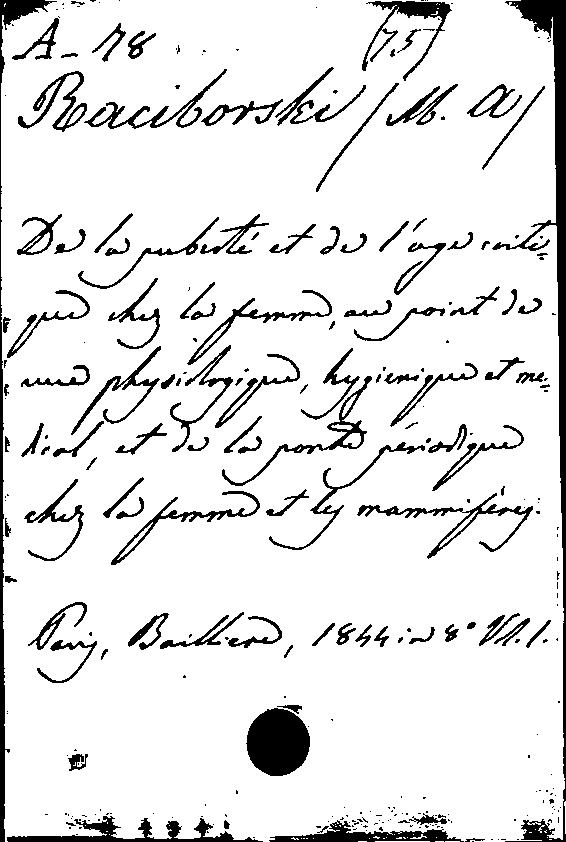 A-78 (75)
Raciborski (M. A)
De la puberté et de l'age criti=
que chez la femme, au point de
vue physiologique, hygienique et me=
dical, et de la ponte périodique
chez la femme et les mammifères.
Paris, Baillière, 1844 in 8° Vl. 1.